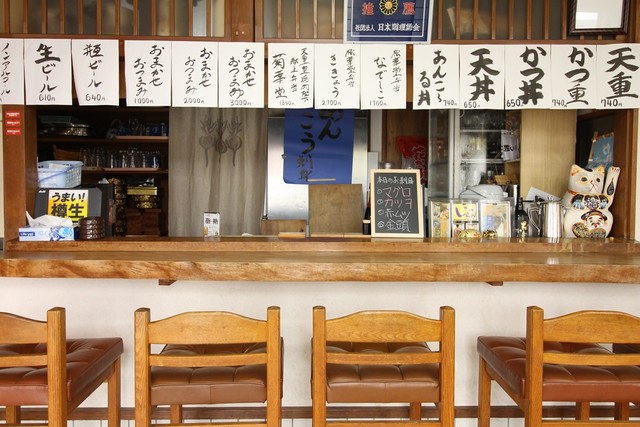 推薦
社団法人 日本調理師会
ノンアルコール
生ビール
610円
瓶ビール
640円
おまかせ
おつまみ
1000円
おまかせ
おつまみ
2000円
おまかせ
おつまみ
3000円
菊華堂
1850円
松華堂弁当
ききょう
2700円
松華堂弁当
なでしこ
1760円
あんこう
る丼
740円
天丼
650円
かつ丼
650円
かつ重
740円
天重
740円
うまい!
樽生
本日のお刺身
○マグロ
○カツヲ
○ホムツ
○金頭